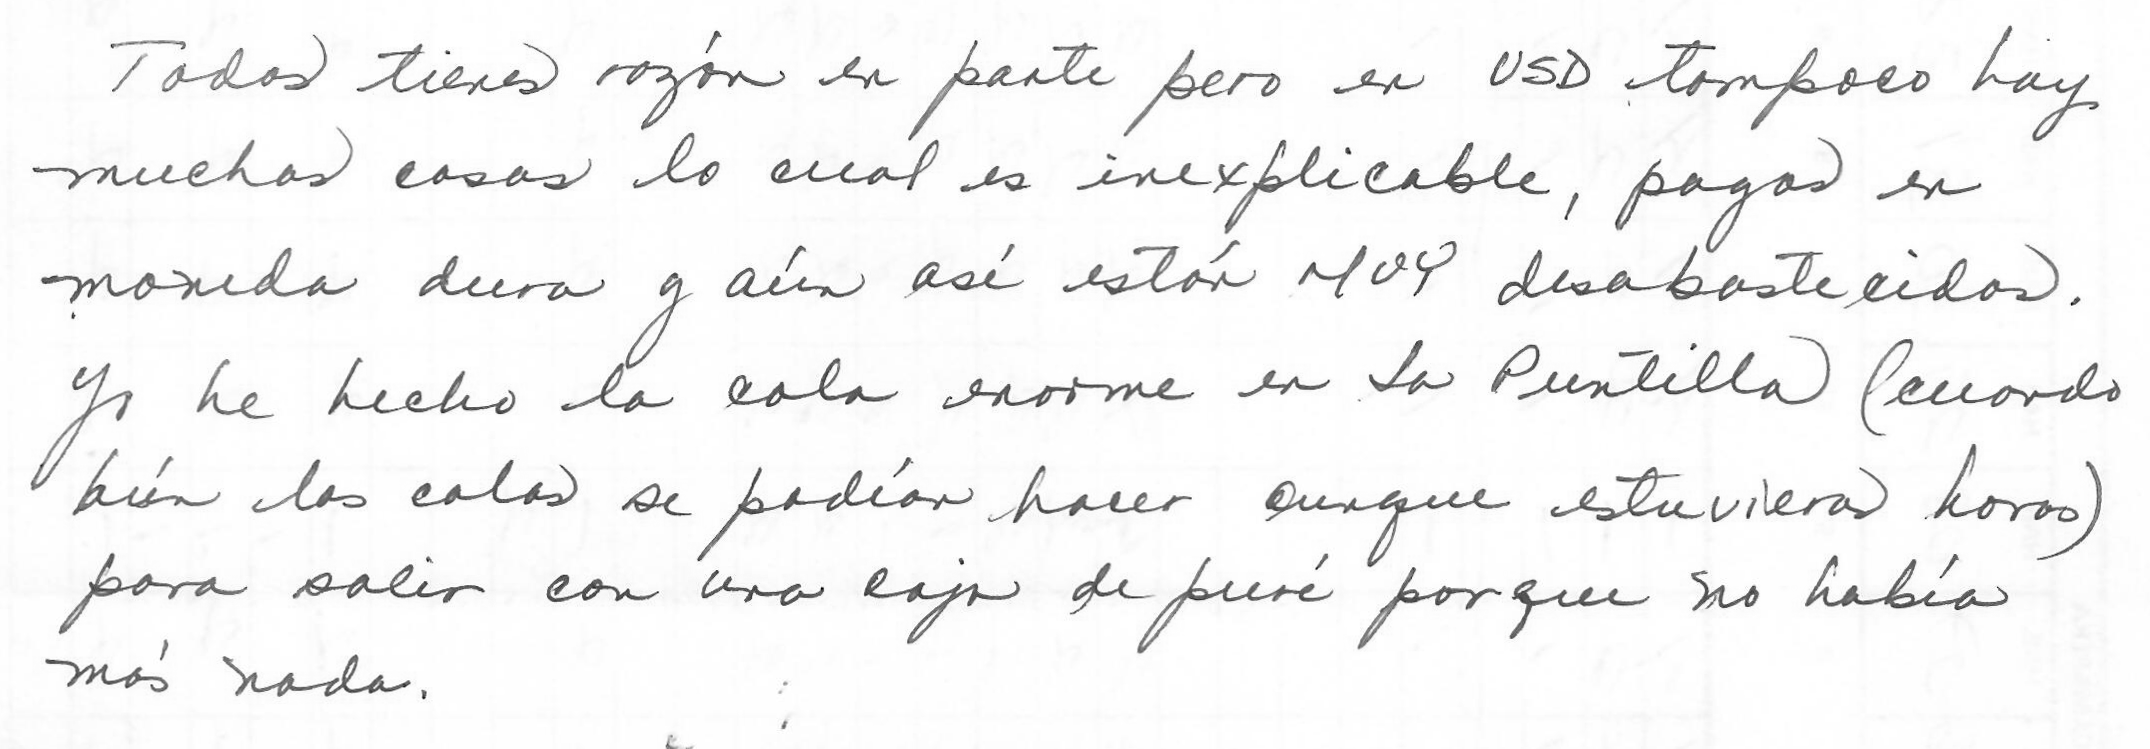 Todos tienes razón en parte pero en USD tampoco hay
muchas cosas lo cual es inexplicable, pagas en
moneda dura y aún así están MUY desabastecidas.
Yo he hecho la cola enorme en La Puntilla (cuando
aún las colas se podían hacer aunque estuvieras horas)
para salir con una caja de puré porque no había
más nada.